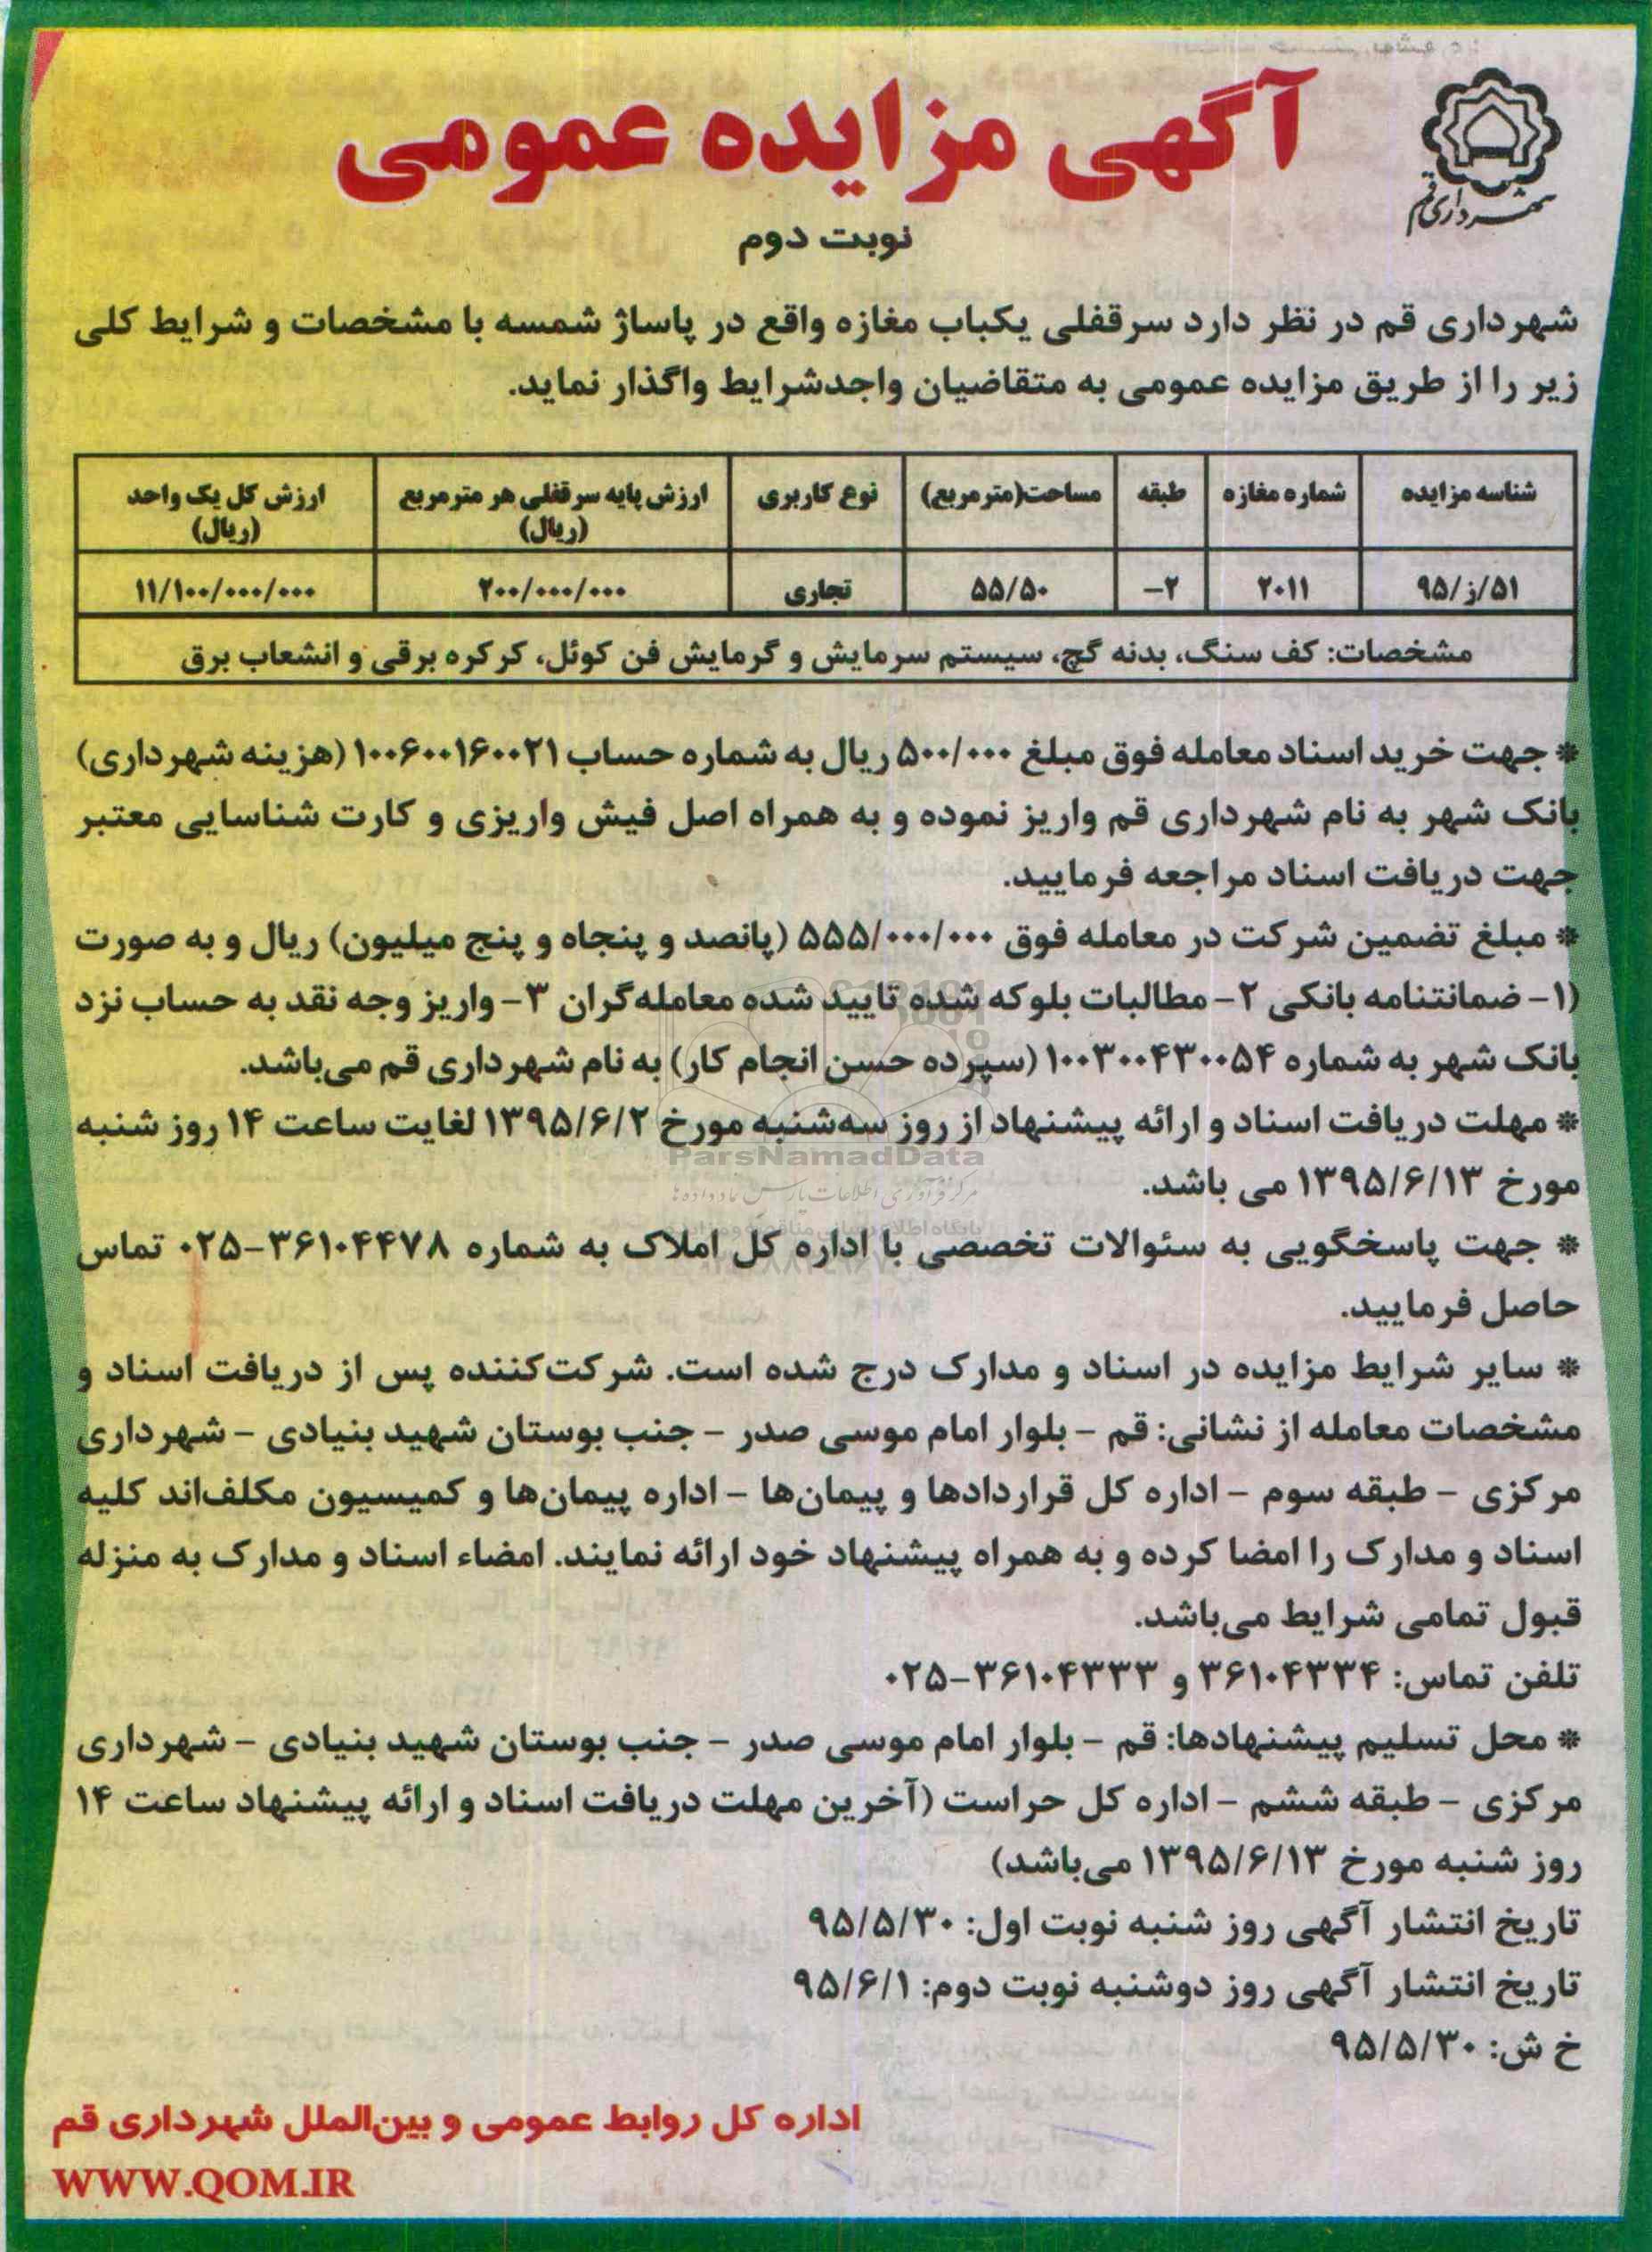 شهرداری قم
آگهی مزایده عمومی
نوبت دوم
شهرداری قم در نظر دارد سرقفلی یکباب مغازه واقع در پاساژ شمسه با مشخصات و شرایط کلی
زیر را از طریق مزایده عمومی به متقاضیان واجدشرایط واگذار نماید.
شناسه مزایده شماره مغازه طبقه مساحت(مترمربع) نوع کاربری ارزش پایه سرقفلی هر مترمربع (ریال) ارزش کل یک واحد (ریال)
۵۱/ز/۹۵ ۲۰۱۱ ۲- ۵۵/۵۰ تجاری ۲۰۰/۰۰۰/۰۰۰ ۱۱/۱۰۰/۰۰۰/۰۰۰
مشخصات: کف سنگ، بدنه گچ، سیستم سرمایش و گرمایش فن کوئل، کرکره برقی و انشعاب برق
* جهت خرید اسناد معامله فوق مبلغ ۵۰۰/۰۰۰ ریال به شماره حساب ۱۰۰۶۰۰۱۶۰۰۲۱ (هزینه شهرداری)
بانک شهر به نام شهرداری قم واریز نموده و به همراه اصل فیش واریزی و کارت شناسایی معتبر
جهت دریافت اسناد مراجعه فرمایید.
* مبلغ تضمین شرکت در معامله فوق ۵۵۵/۰۰۰/۰۰۰ (پانصد و پنجاه و پنج میلیون) ریال و به صورت
(۱- ضمانتنامه بانکی ۲- مطالبات بلوکه شده تایید شده معامله‌گران ۳- واریز وجه نقد به حساب نزد
بانک شهر به شماره ۱۰۰۳۰۰۴۳۰۰۵۴ (سپرده حسن انجام کار) به نام شهرداری قم می‌باشد.
* مهلت دریافت اسناد و ارائه پیشنهاد از روز سه‌شنبه مورخ ۱۳۹۵/۶/۲ لغایت ساعت ۱۴ روز شنبه
ParsNamadData
مورخ ۱۳۹۵/۶/۱۳ می باشد.
مرکز فرآوری اطلاعات پارس نماد داده ها
* جهت پاسخگویی به سئوالات تخصصی با اداره کل املاک به شماره ۳۶۱۰۴۴۷۸-۰۲۵ تماس
حاصل فرمایید.
* سایر شرایط مزایده در اسناد و مدارک درج شده است. شرکت‌کننده پس از دریافت اسناد و
مشخصات معامله از نشانی: قم - بلوار امام موسی صدر - جنب بوستان شهید بنیادی - شهرداری
مرکزی - طبقه سوم - اداره کل قراردادها و پیمان‌ها - اداره پیمان‌ها و کمیسیون مکلف‌اند کلیه
اسناد و مدارک را امضا کرده و به همراه پیشنهاد خود ارائه نمایند. امضاء اسناد و مدارک به منزله
قبول تمامی شرایط می‌باشد.
تلفن تماس: ۳۶۱۰۴۳۳۴ و ۳۶۱۰۴۳۳۳-۰۲۵
* محل تسلیم پیشنهادها: قم - بلوار امام موسی صدر - جنب بوستان شهید بنیادی - شهرداری
مرکزی - طبقه ششم - اداره کل حراست (آخرین مهلت دریافت اسناد و ارائه پیشنهاد ساعت ۱۴
روز شنبه مورخ ۱۳۹۵/۶/۱۳ می‌باشد)
تاریخ انتشار آگهی روز شنبه نوبت اول: ۹۵/۵/۳۰
تاریخ انتشار آگهی روز دوشنبه نوبت دوم: ۹۵/۶/۱
خ ش: ۹۵/۵/۳۰
اداره کل روابط عمومی و بین‌الملل شهرداری قم
WWW.QOM.IR